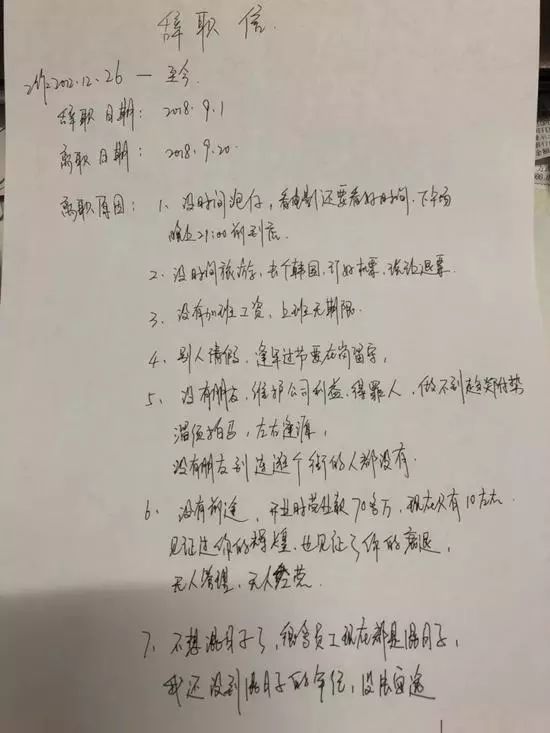 辞职信.
工作2012.12.26 — 至今.
辞职日期: 2018.9.1
离职日期: 2018.9.20.
离职原因: 1、没时间泡仔,看电影还要看好时间.下午场
晚上21:00前到底.
2、没时间旅游,去个韩国,订好机票,张泊退票.
3、没有加班工资,上班无期限.
4、别人请假,逢年过节要在岗留守,
5、没有朋友,维护公司利益,得罪人,做不到趋炎附势
溜须拍马,左右逢源,
没有朋友到连逛个街的人都没有.
6、没有前途,开业时营业款70多万,现在只有10左右.
见证过你的辉煌.也见证了你的衰退,
无人管理,无人经营.
7、不想混日子了,很多员工现在都是混日子,
我还没到混日子的年纪,没法